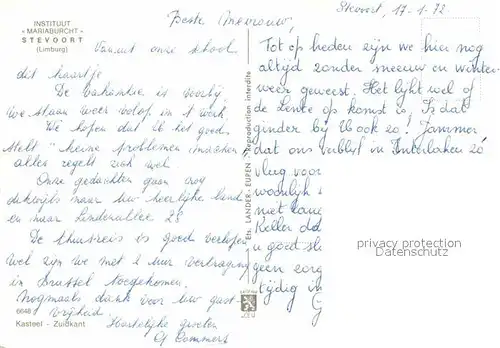 INSTITUUT
« MARIABURCHT »
STEVOORT
(Limburg)
Stevoort, 17-1-72
Beste Mevrouw,
Vanuit onze school
dit kaartje
De vakantie is voorbij
We staan weer volop in 't werk
We hopen dat U het goed
stelt "kleine problemen maken"
alles regelt zich wel.
Onze gedachten gaan nog
dikwijls naar Uw heerlijke land
en naar Lindenallee 28
De thuisreis is goed verlopen
wel zijn we met 1 uur vertraging
in Brussel toegekomen.
Nogmaals dank voor Uw gast-
vrijheid.
Hartelijke groeten
Tot op heden zijn we hier nog
altijd zonder sneeuw en winter-
weer geweest. Het lijkt wel of
de Lente op komst is. Is dat
ginder bij U ook zo? Jammer
dat ons verblijf in Interlaken zo
vlug voor
niet lang
Keller
u goed
geen zorg
tijdig in
Ets. LANDER - EUPEN Reproduction interdite
6648
Kasteel - Zuidkant
privacy protection
Datenschutz